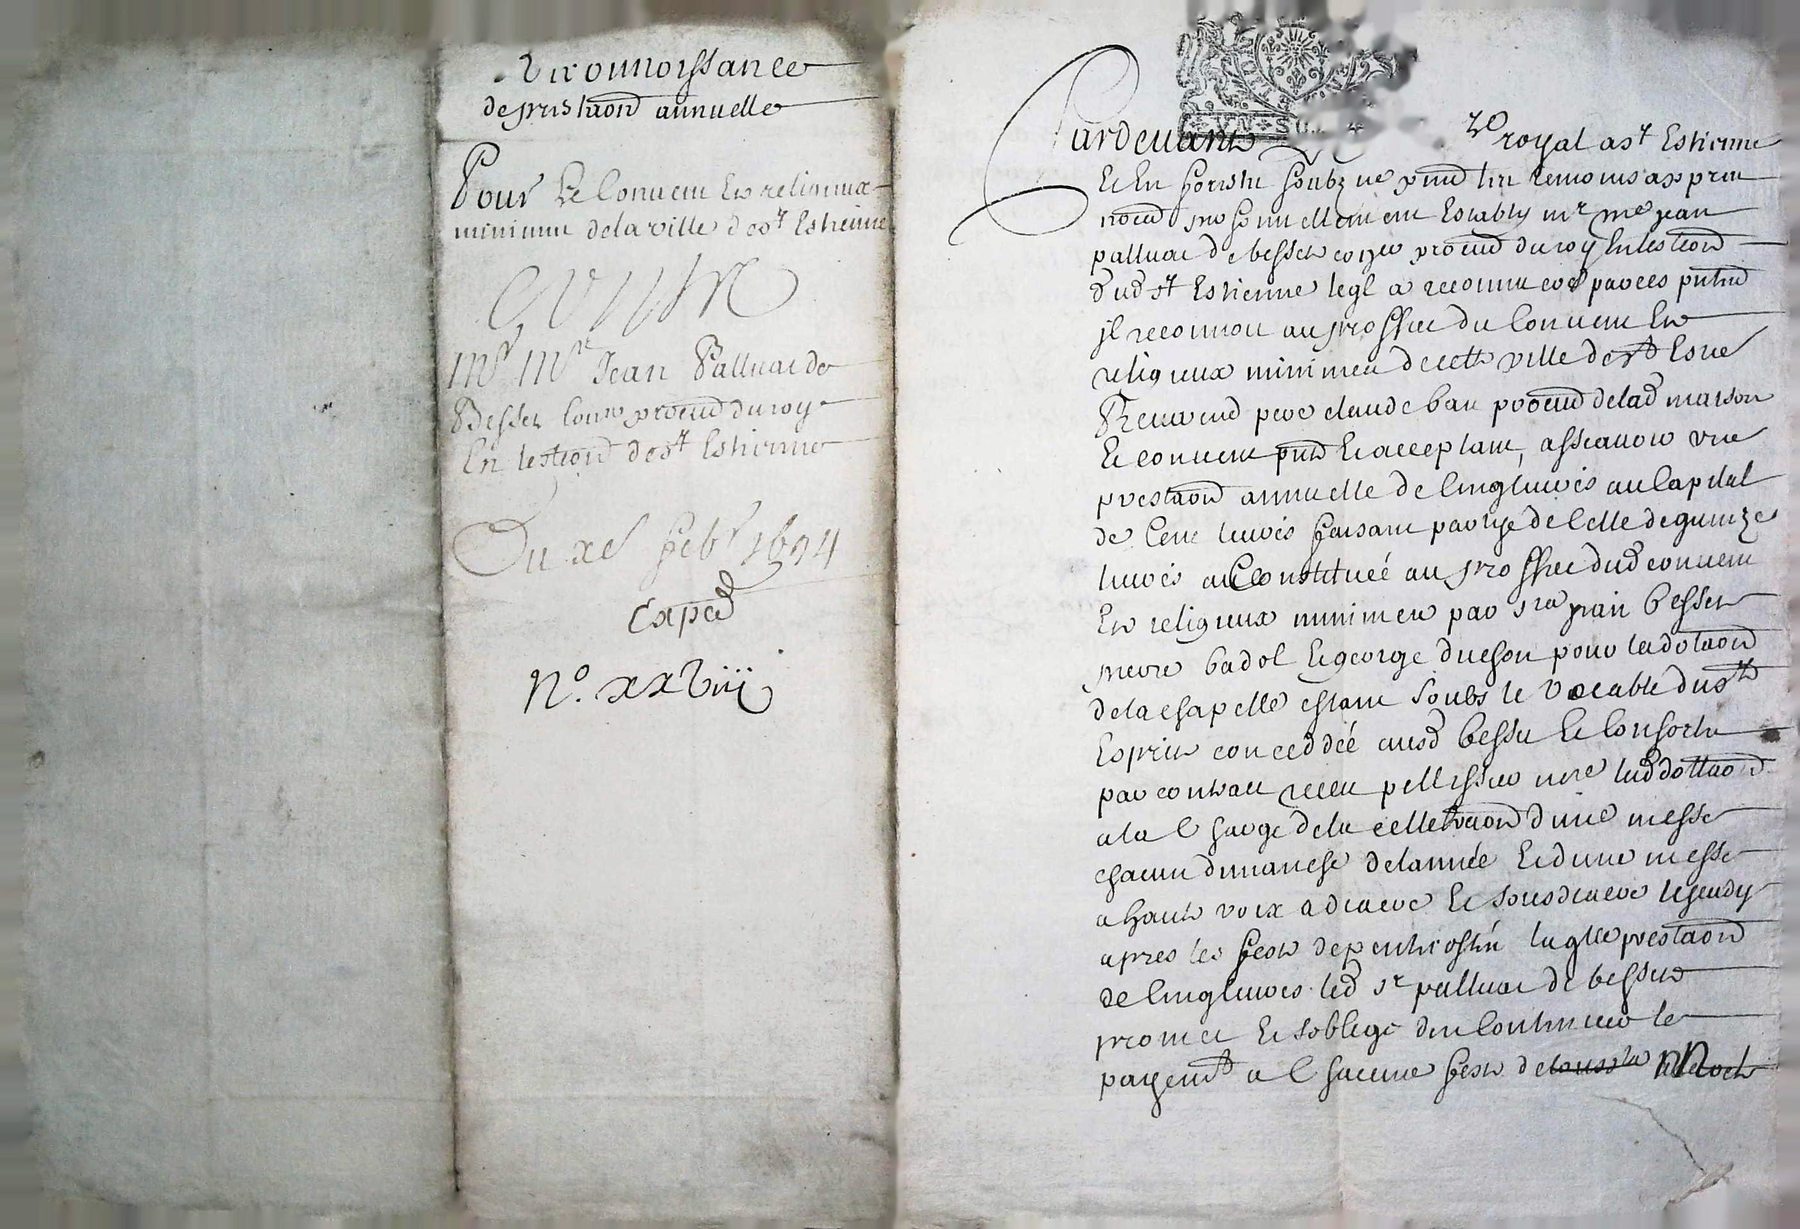 Reconnoissance
de prestaōn annuelle
Pour Les Conuent Et religieux
minimes de la ville de st Estienne
Contre
Mr Me Jean Palluat de
Besset Conr procur du roy
En lestion de st Estienne
Du xe febr 1694
Expéd
No. xxViiij
VN SOL
Pardeuant no royal a st Estienne
Et En forestz soubzne pnt les temoins apprea
noes personnellement Estably mr me jean
palluat de besset conr procur du roy En lestion
dud st Estienne leql a reconnu et par ces pntes
jl reconnoit au proffict du Conuent Et
religieux minimes de cette ville de st Esne
Reuerend pere claude bau procur de lad maison
Et conuent pnt Et acceptant, assauoir vne
prestaōn annuelle de Cinq liures au Capital
de Cent liures faisant partye de Celle de quinze
liures constituéé au proffict dud conuent
Et religieux minimes par srs jean besset
pierre badol Et george duchon pour la dotaōn
de la chapelle estant soubs le vocable du st
Esprit conceddéé ausd besset Et Consorts
par contract receu pellissier nore lad dottaōn
a la Charge de la cellebraōn dune messe
chacun dimanche de lannéé Et dune messe
a haute voix a diacre Et sousdiacre le jeudy
apres les festes de pentecoste laqlle prestaōn
de Cinq liures led sr palluat de besset
promet Et soblige den Continuer le
payemt a Chacune feste de